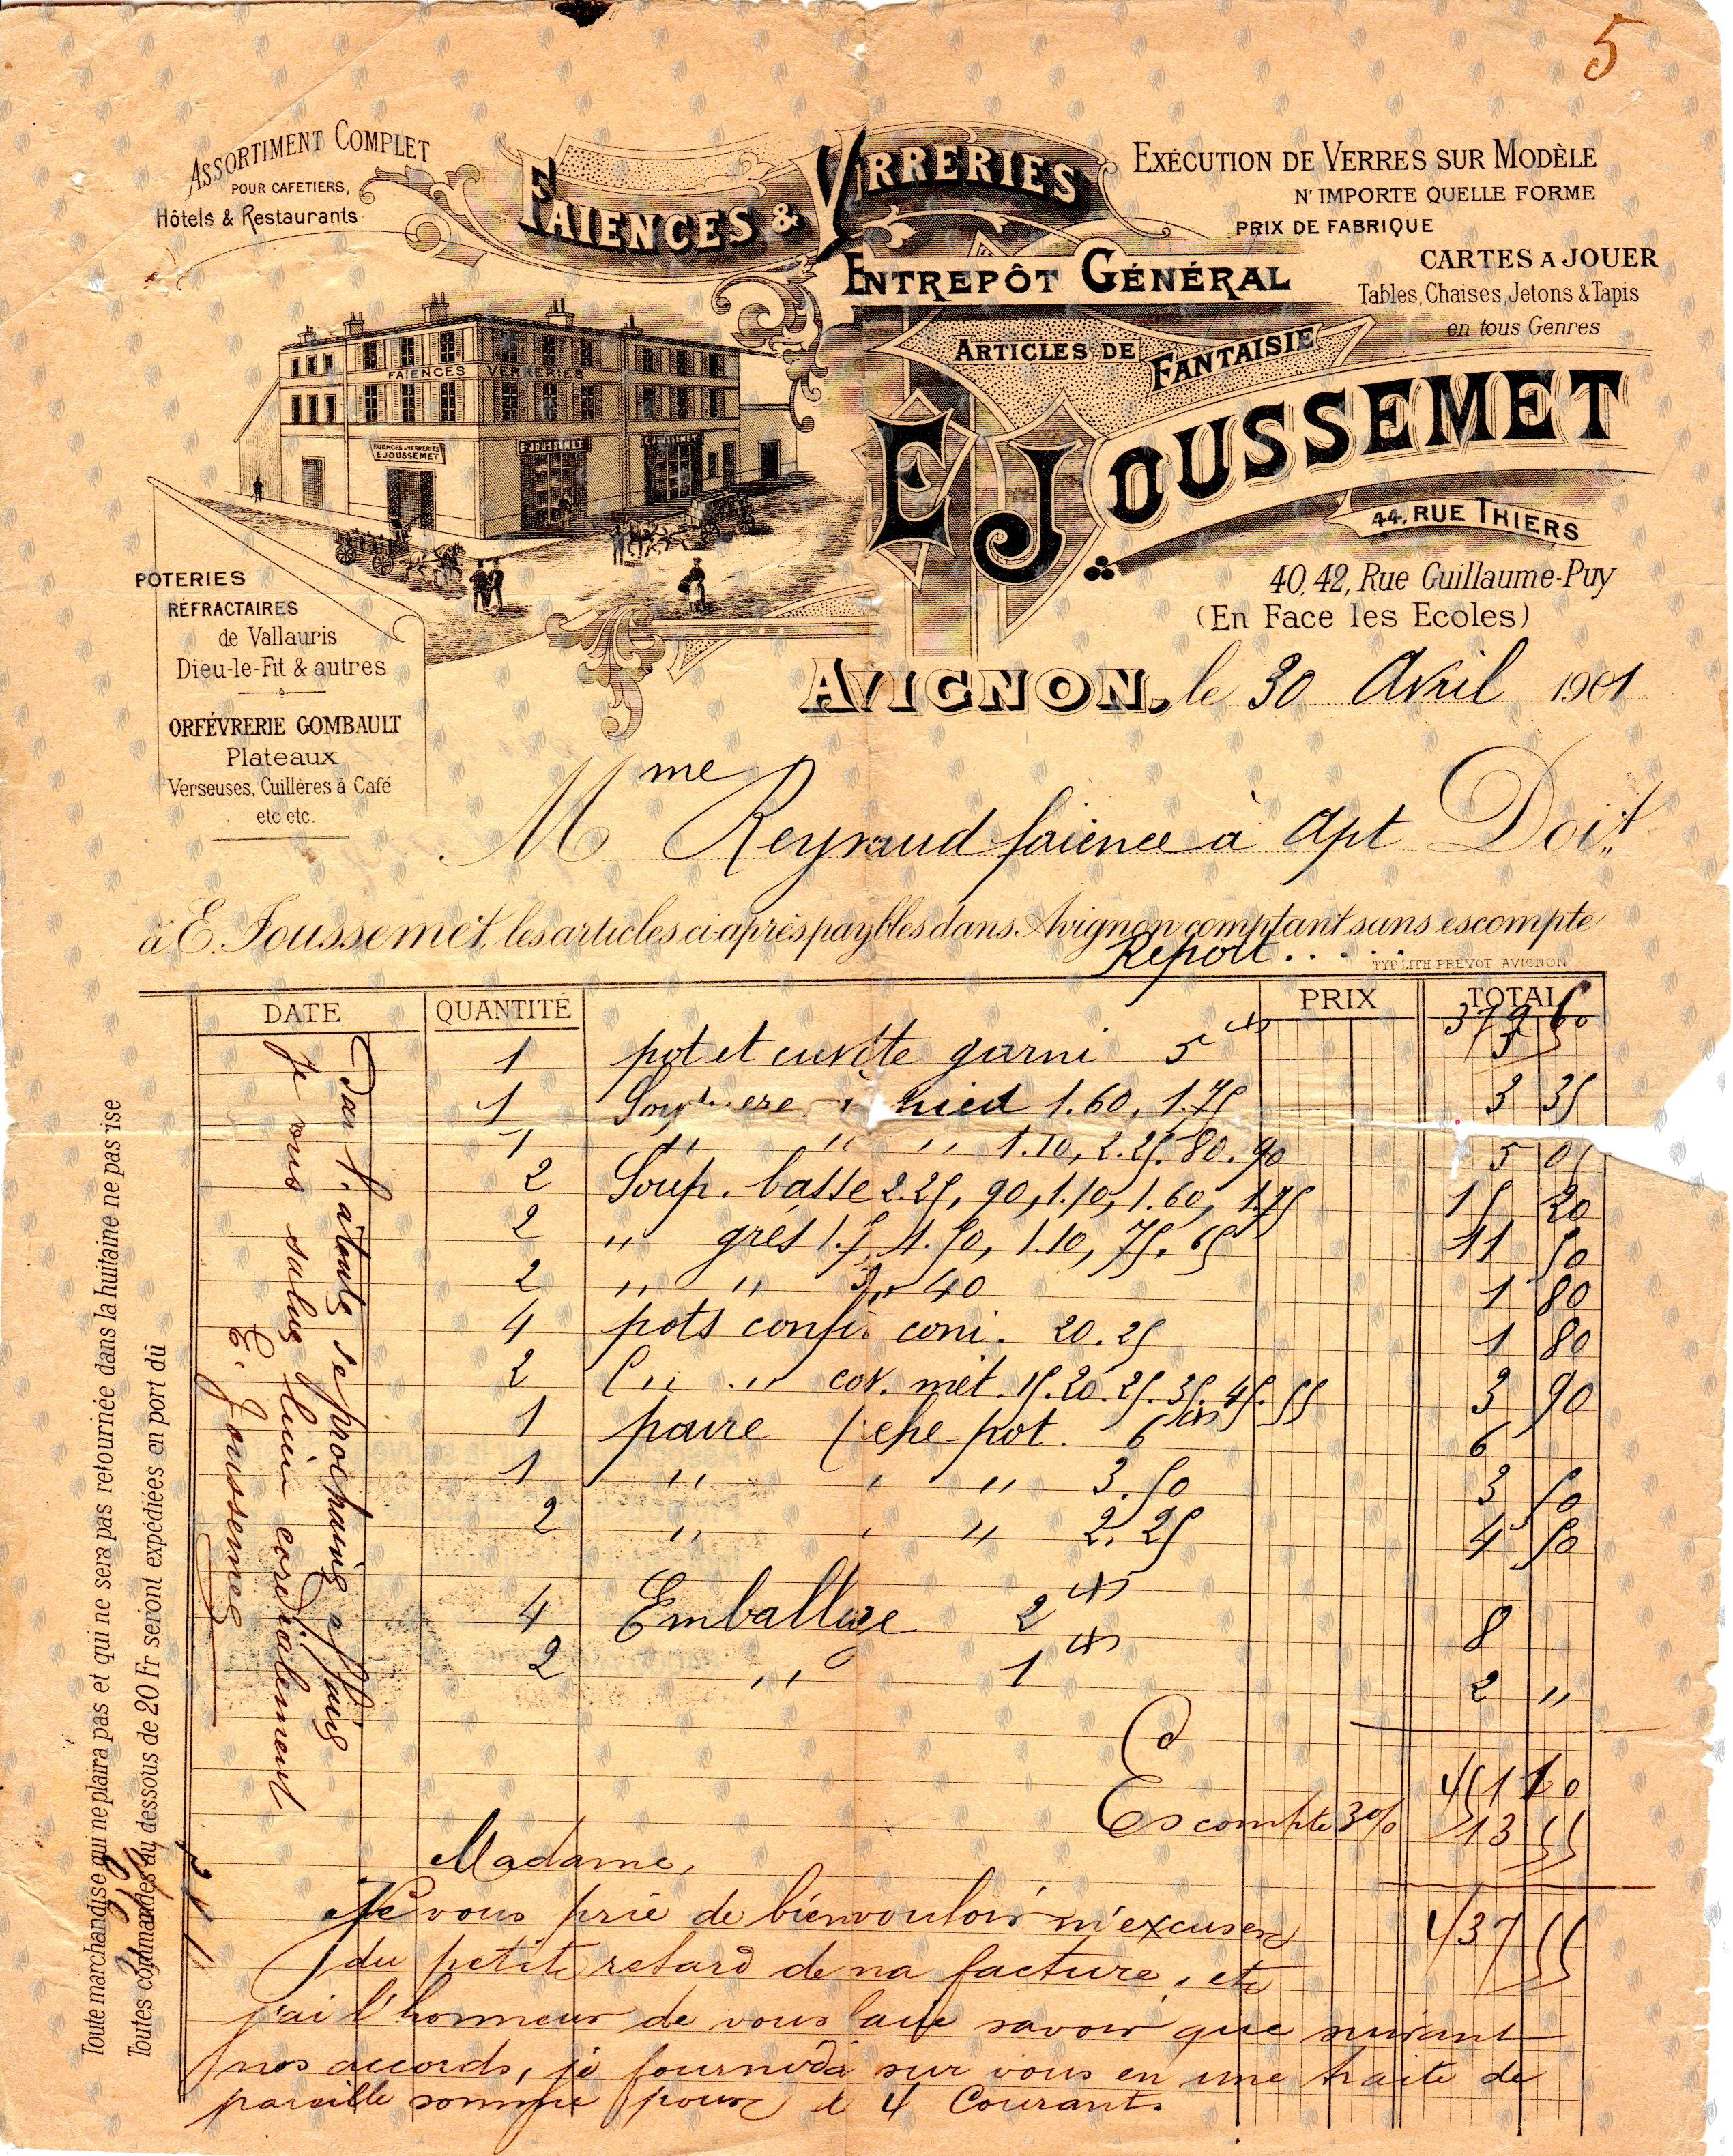 5
ASSORTIMENT COMPLET
POUR CAFETIERS,
Hôtels & Restaurants
FAIENCES & VERRERIES
ENTREPÔT GÉNÉRAL
ARTICLES DE FANTAISIE
E JOUSSEMET
44, RUE THIERS
40, 42, Rue Guillaume-Puy
(En Face les Ecoles)
EXÉCUTION DE VERRES SUR MODÈLE
N'IMPORTE QUELLE FORME
PRIX DE FABRIQUE
CARTES A JOUER
Tables, Chaises, Jetons & Tapis
en tous Genres
FAIENCES VERRERIES
FAIENCES & VERRERIES
E JOUSSEMET
E JOUSSEMET
E JOUSSEMET
POTERIES
RÉFRACTAIRES
de Vallauris
Dieu-le-Fit & autres
ORFÉVRERIE GOMBAULT
Plateaux
Verseuses, Cuillères à Café
etc etc.
AVIGNON, le 30 Avril 1901
Mme Reynaud faience à Apt Doit
à E. Joussemet, les articles ci-après paybles dans Avignon comptant sans escompte
Report . . . . .
TYP. LITH PREVOT AVIGNON
DATE QUANTITÉ PRIX TOTAL
379 60
1 pot et cuvette garni 5 5
1 pied 1.60, 1.75 3 35
1 " " " 1.10, 2.25, 80. 90 5 05
2 Soup. basse 2.25, 90, 1.10, 1.60, 1.75 15 20
2 " grés 1.50, 1.10, 75, 65 11 50
2 " " 40 1 80
4 pots confi. coni. 20. 25 1 80
2 " " cov. mét. 15. 20. 25. 35. 45. 55 3 90
1 paire Cche pot. 6 6
1 " " " 3.50 3 50
2 " " " 2.25 4 50
4 Emballage 2 8
2 " 1 2 "
451 10
Escompte 3% 13 55
437 55
Dans l'attente
Je vous salue bien cordialement
E. Joussemet
Madame,
Je vous prie de bien vouloir m'excuser
du petit retard de ma facture, et
j'ai l'honneur de vous faire savoir que suivant
nos accords, je fournirai sur vous en une traite de
pareille somme pour le 4 Courant.
Toute marchandise qui ne plaira pas et qui ne sera pas retournée dans la huitaine ne pas ise
Toutes commandes au dessous de 20 Fr seront expédiées en port dû